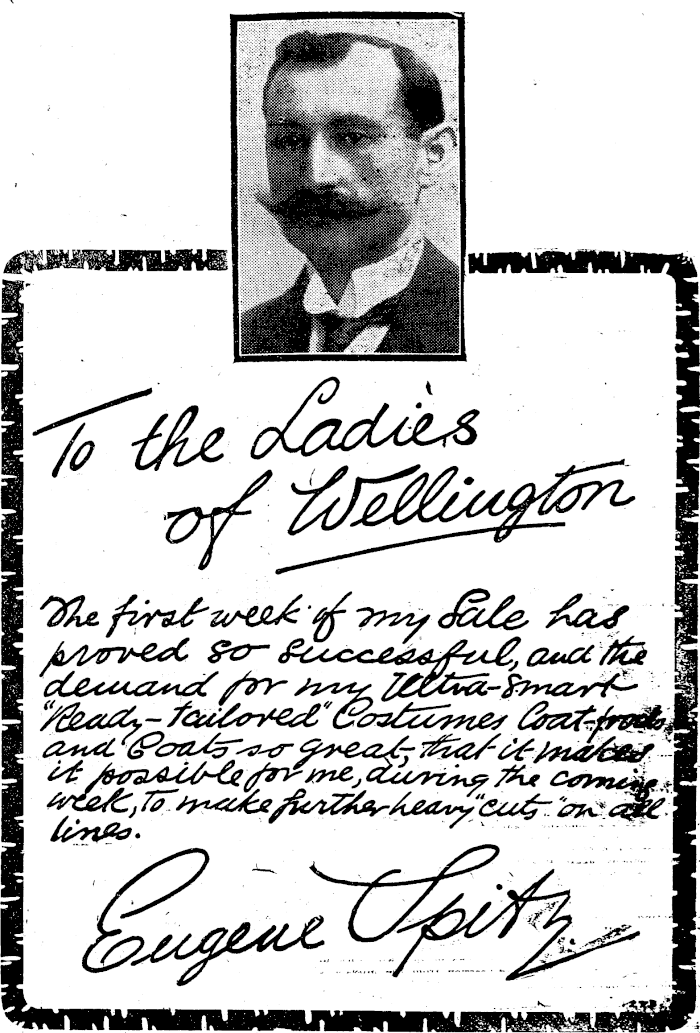 To the Ladies
of Wellington
The first week of my Sale has
proved so successful, and the
demand for my Ultra-Smart
"Ready-Tailored" Costumes Coat-frocks
and Coats so great, that it makes
it possible for me, during the coming
week, to make further heavy "cuts" on all
lines.
Eugene Spitz